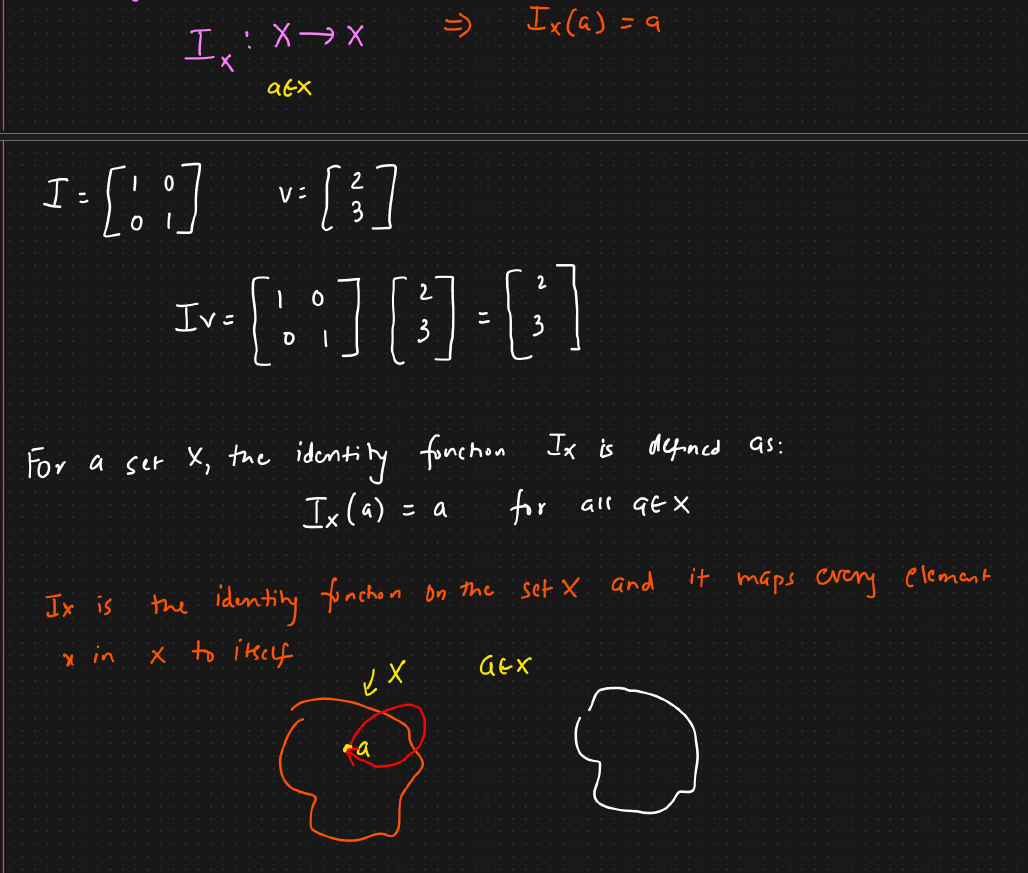 I_x : X → X ⇒ I_x(a) = a
a ∈ X
I = [1 0; 0 1] v = [2; 3]
Iv = [1 0; 0 1] [2; 3] = [2; 3]
For a set X, the identity function I_x is defined as:
I_x(a) = a for all a ∈ X
I_x is the identity function on the set X and it maps every element
x in X to itself
↓ X a ∈ X
a